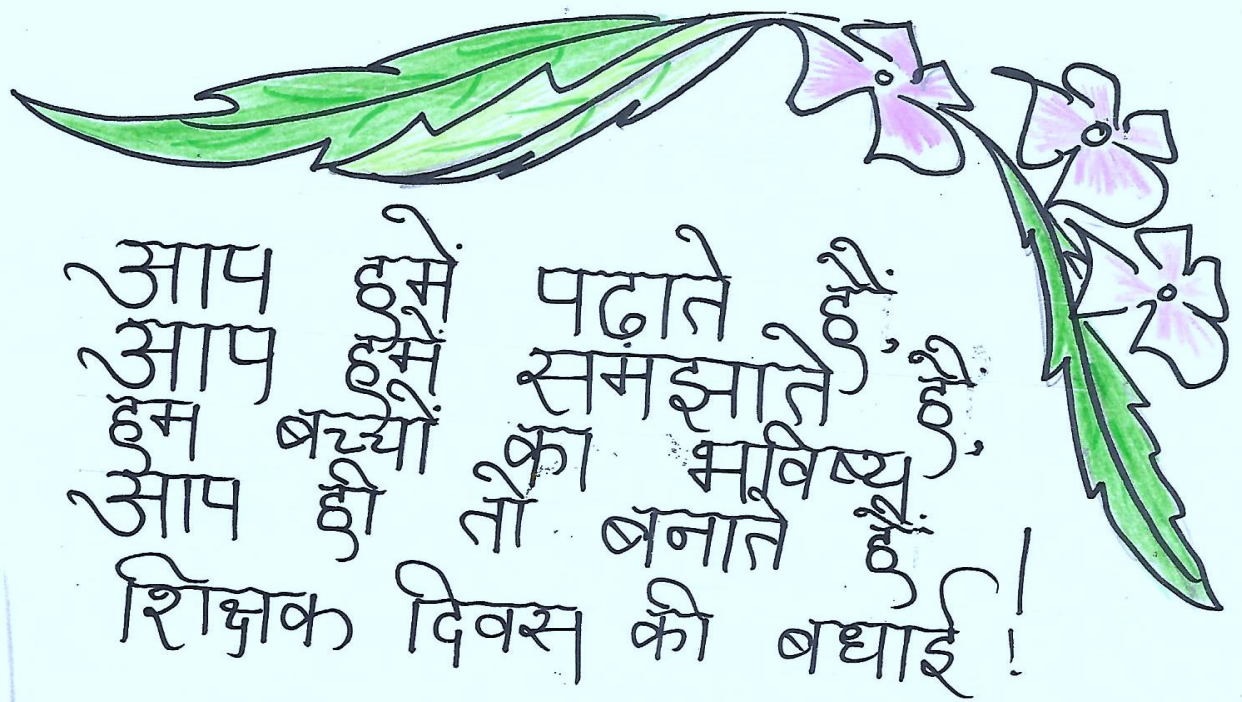 आप हमें पढ़ाते हैं,
आप हमें समझाते हैं,
हम बच्चों का भविष्य
आप ही तो बनाते हैं
शिक्षक दिवस की बधाई !